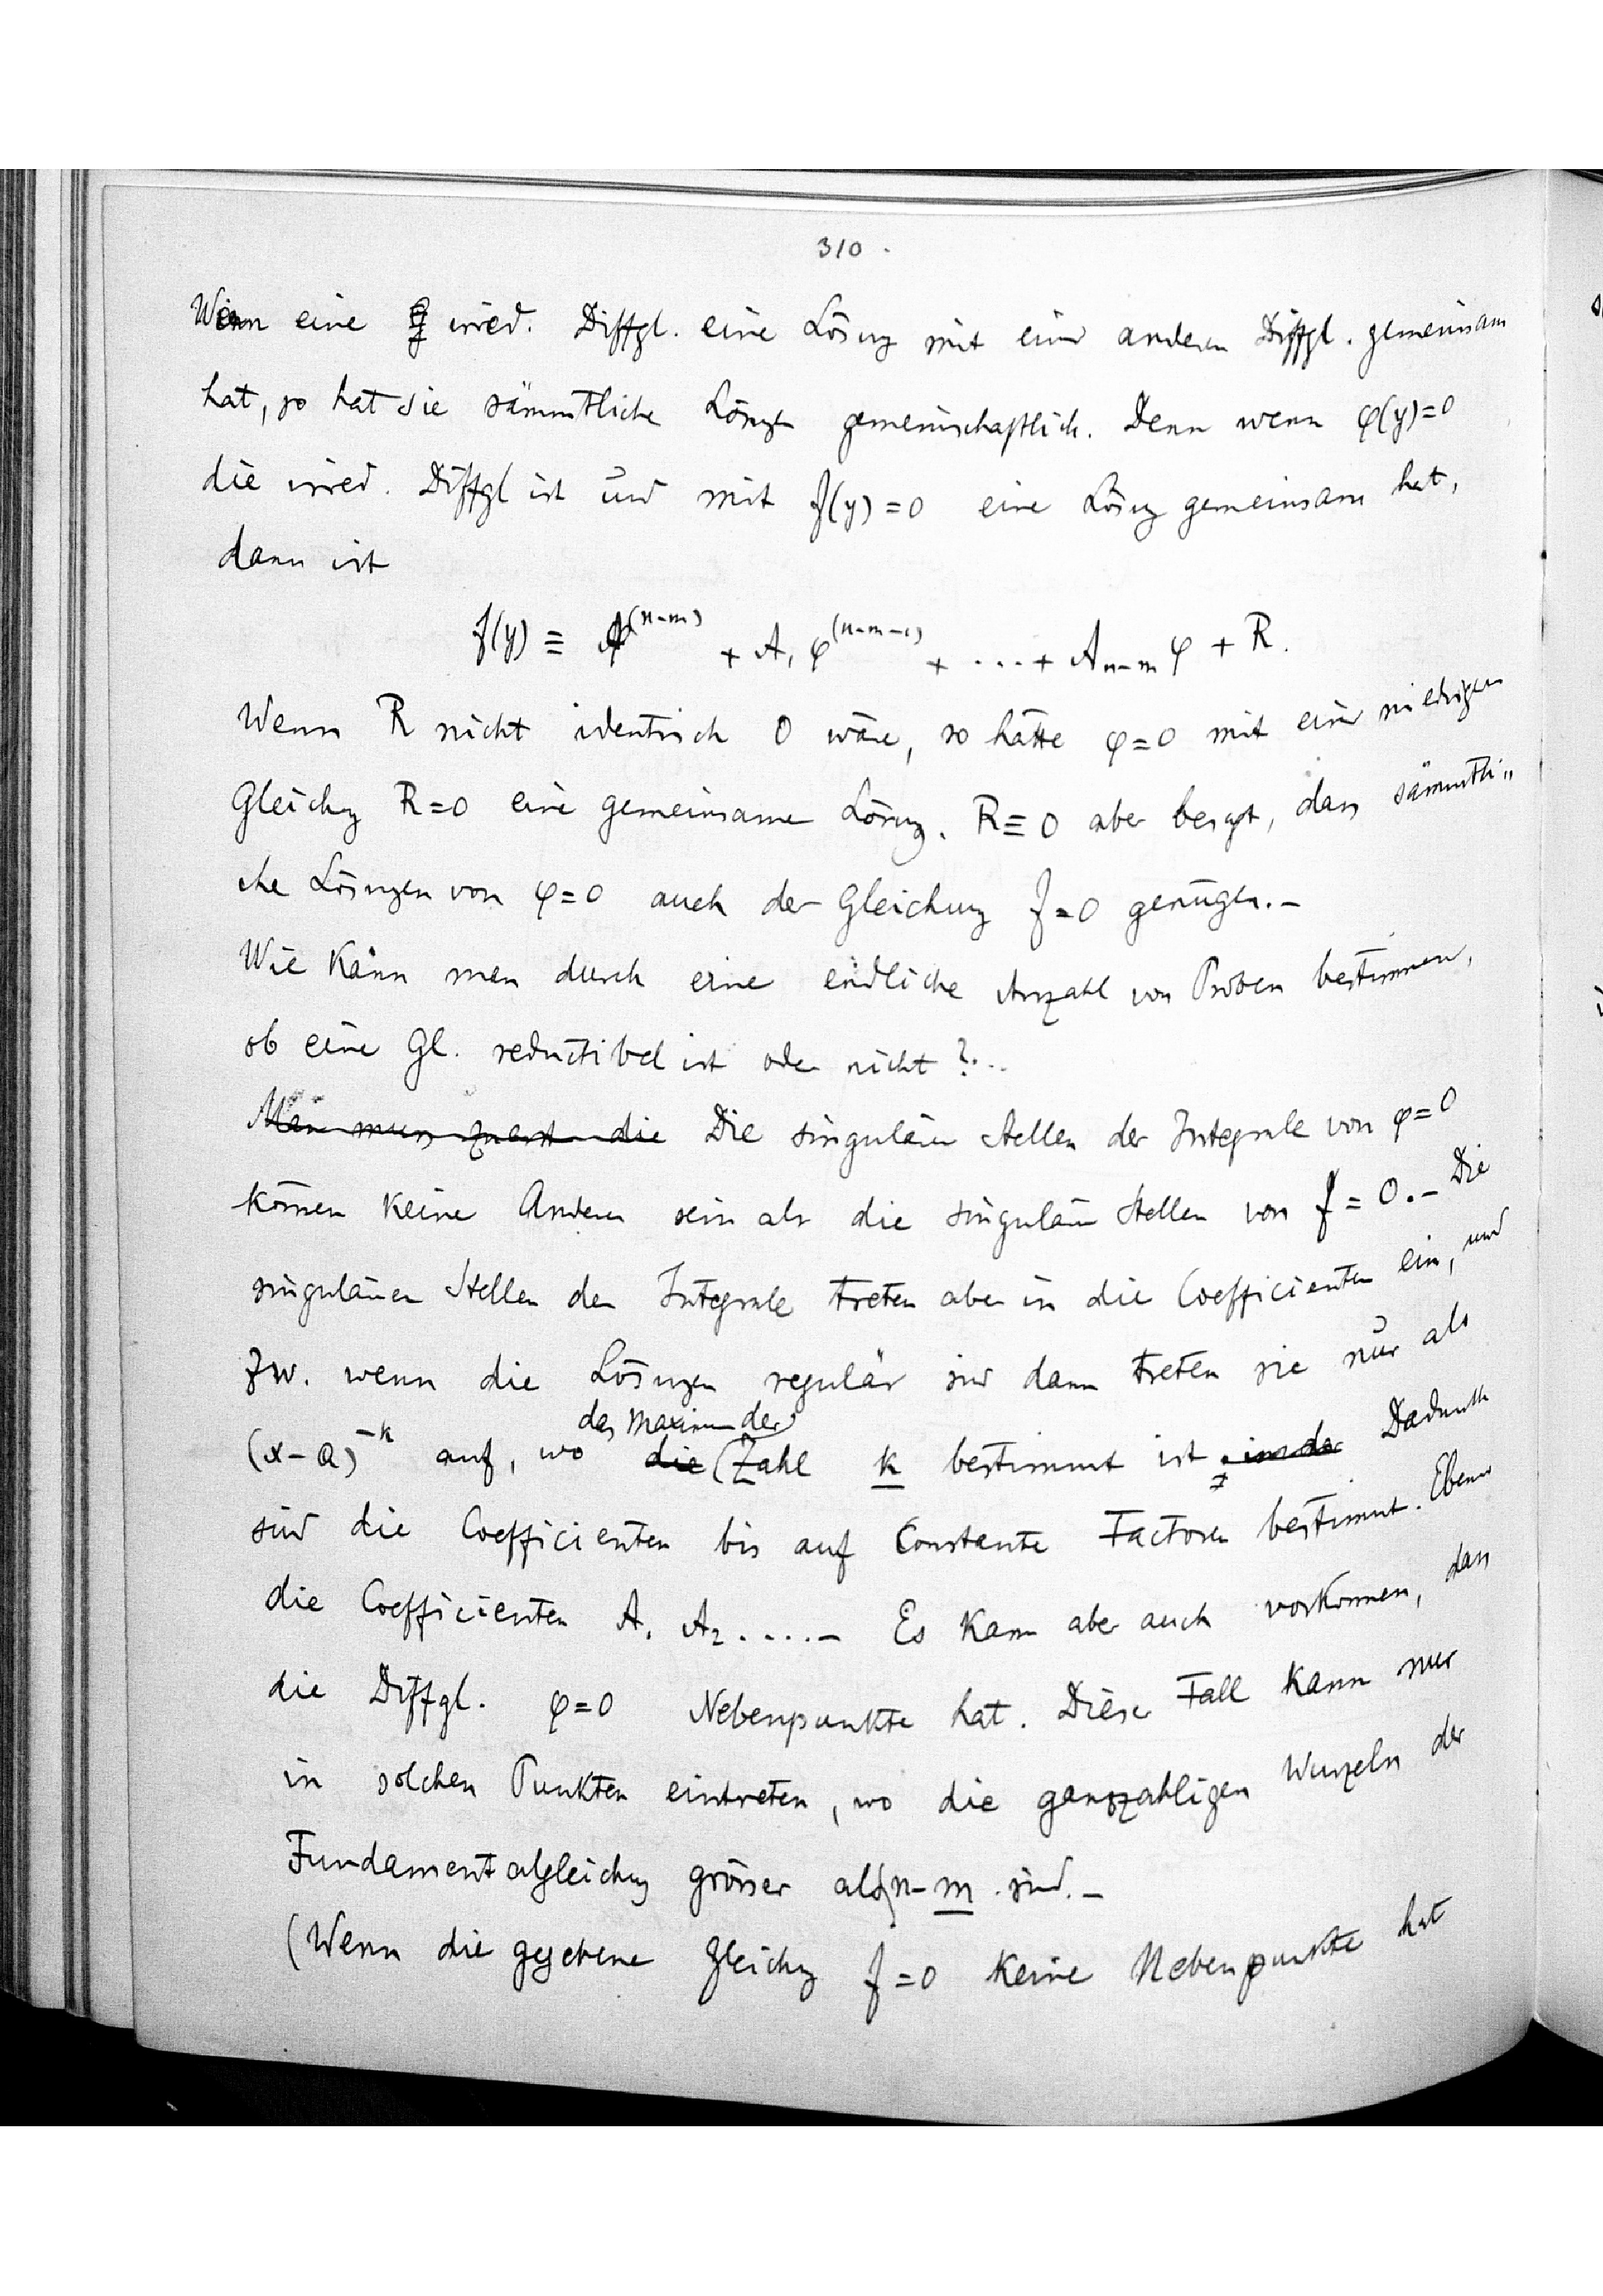 310.
Wenn eine irred. Diffgl. eine Lösung mit einer anderen Diffgl. gemeinsam
hat, so hat sie sämmtliche Lösungen gemeinschaftlich. Denn wenn φ(y)=0
die irred. Diffgl ist und mit f(y)=0 eine Lösung gemeinsam hat,
dann ist
f(y) ≡ φ^(n-m) + A₁ φ^(n-m-1) + ....+ A_{n-m} φ + R.
Wenn R nicht identisch 0 wäre, so hätte φ=0 mit einer niedrigen
Gleichung R=0 eine gemeinsame Lösung. R≡0 aber besagt, dass sämmtli„
che Lösungen von φ=0 auch der Gleichung f=0 genügen.–
Wie kann man durch eine endliche Anzahl von Proben bestimmen,
ob eine Gl. reductibel ist oder nicht?..
Man muss zuerst die Die singulären Stellen der Integrale von φ=0
können keine Anderen sein als die singulären Stellen von f=0.– Die
singulären Stellen der Integrale treten aber in die Coefficienten ein, und
zw. wenn die Lösungen regulär sind dann treten sie nur als
das Maximum der
(x-a)^-k auf, wo die Zahl k bestimmt ist, in der Dadurch
sind die Coefficienten bis auf Constante Factoren bestimmt. Ebenso
die Coefficienten A₁ A₂....– Es kann aber auch vorkommen, dass
die Diffgl. φ=0 Nebenpunkte hat. Dieser Fall kann nur
in solchen Punkten eintreten, wo die ganzzahligen Wurzeln der
Fundamentalgleichung grösser als n-m sind.–
(Wenn die gegebene Gleichung f=0 keine Nebenpunkte hat